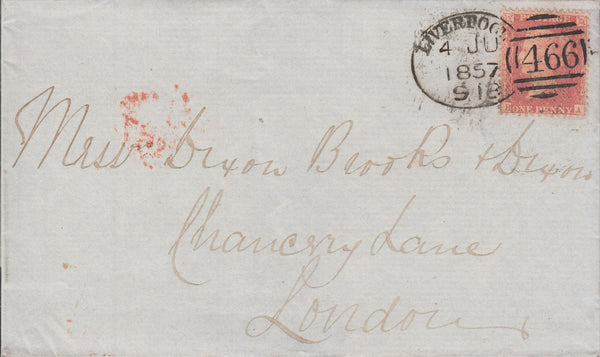 LIVERPOOL
4 JU
1857
S 18
466
ONE PENNY
Messrs Dixon Brooks & Dixon
Chancery Lane
London